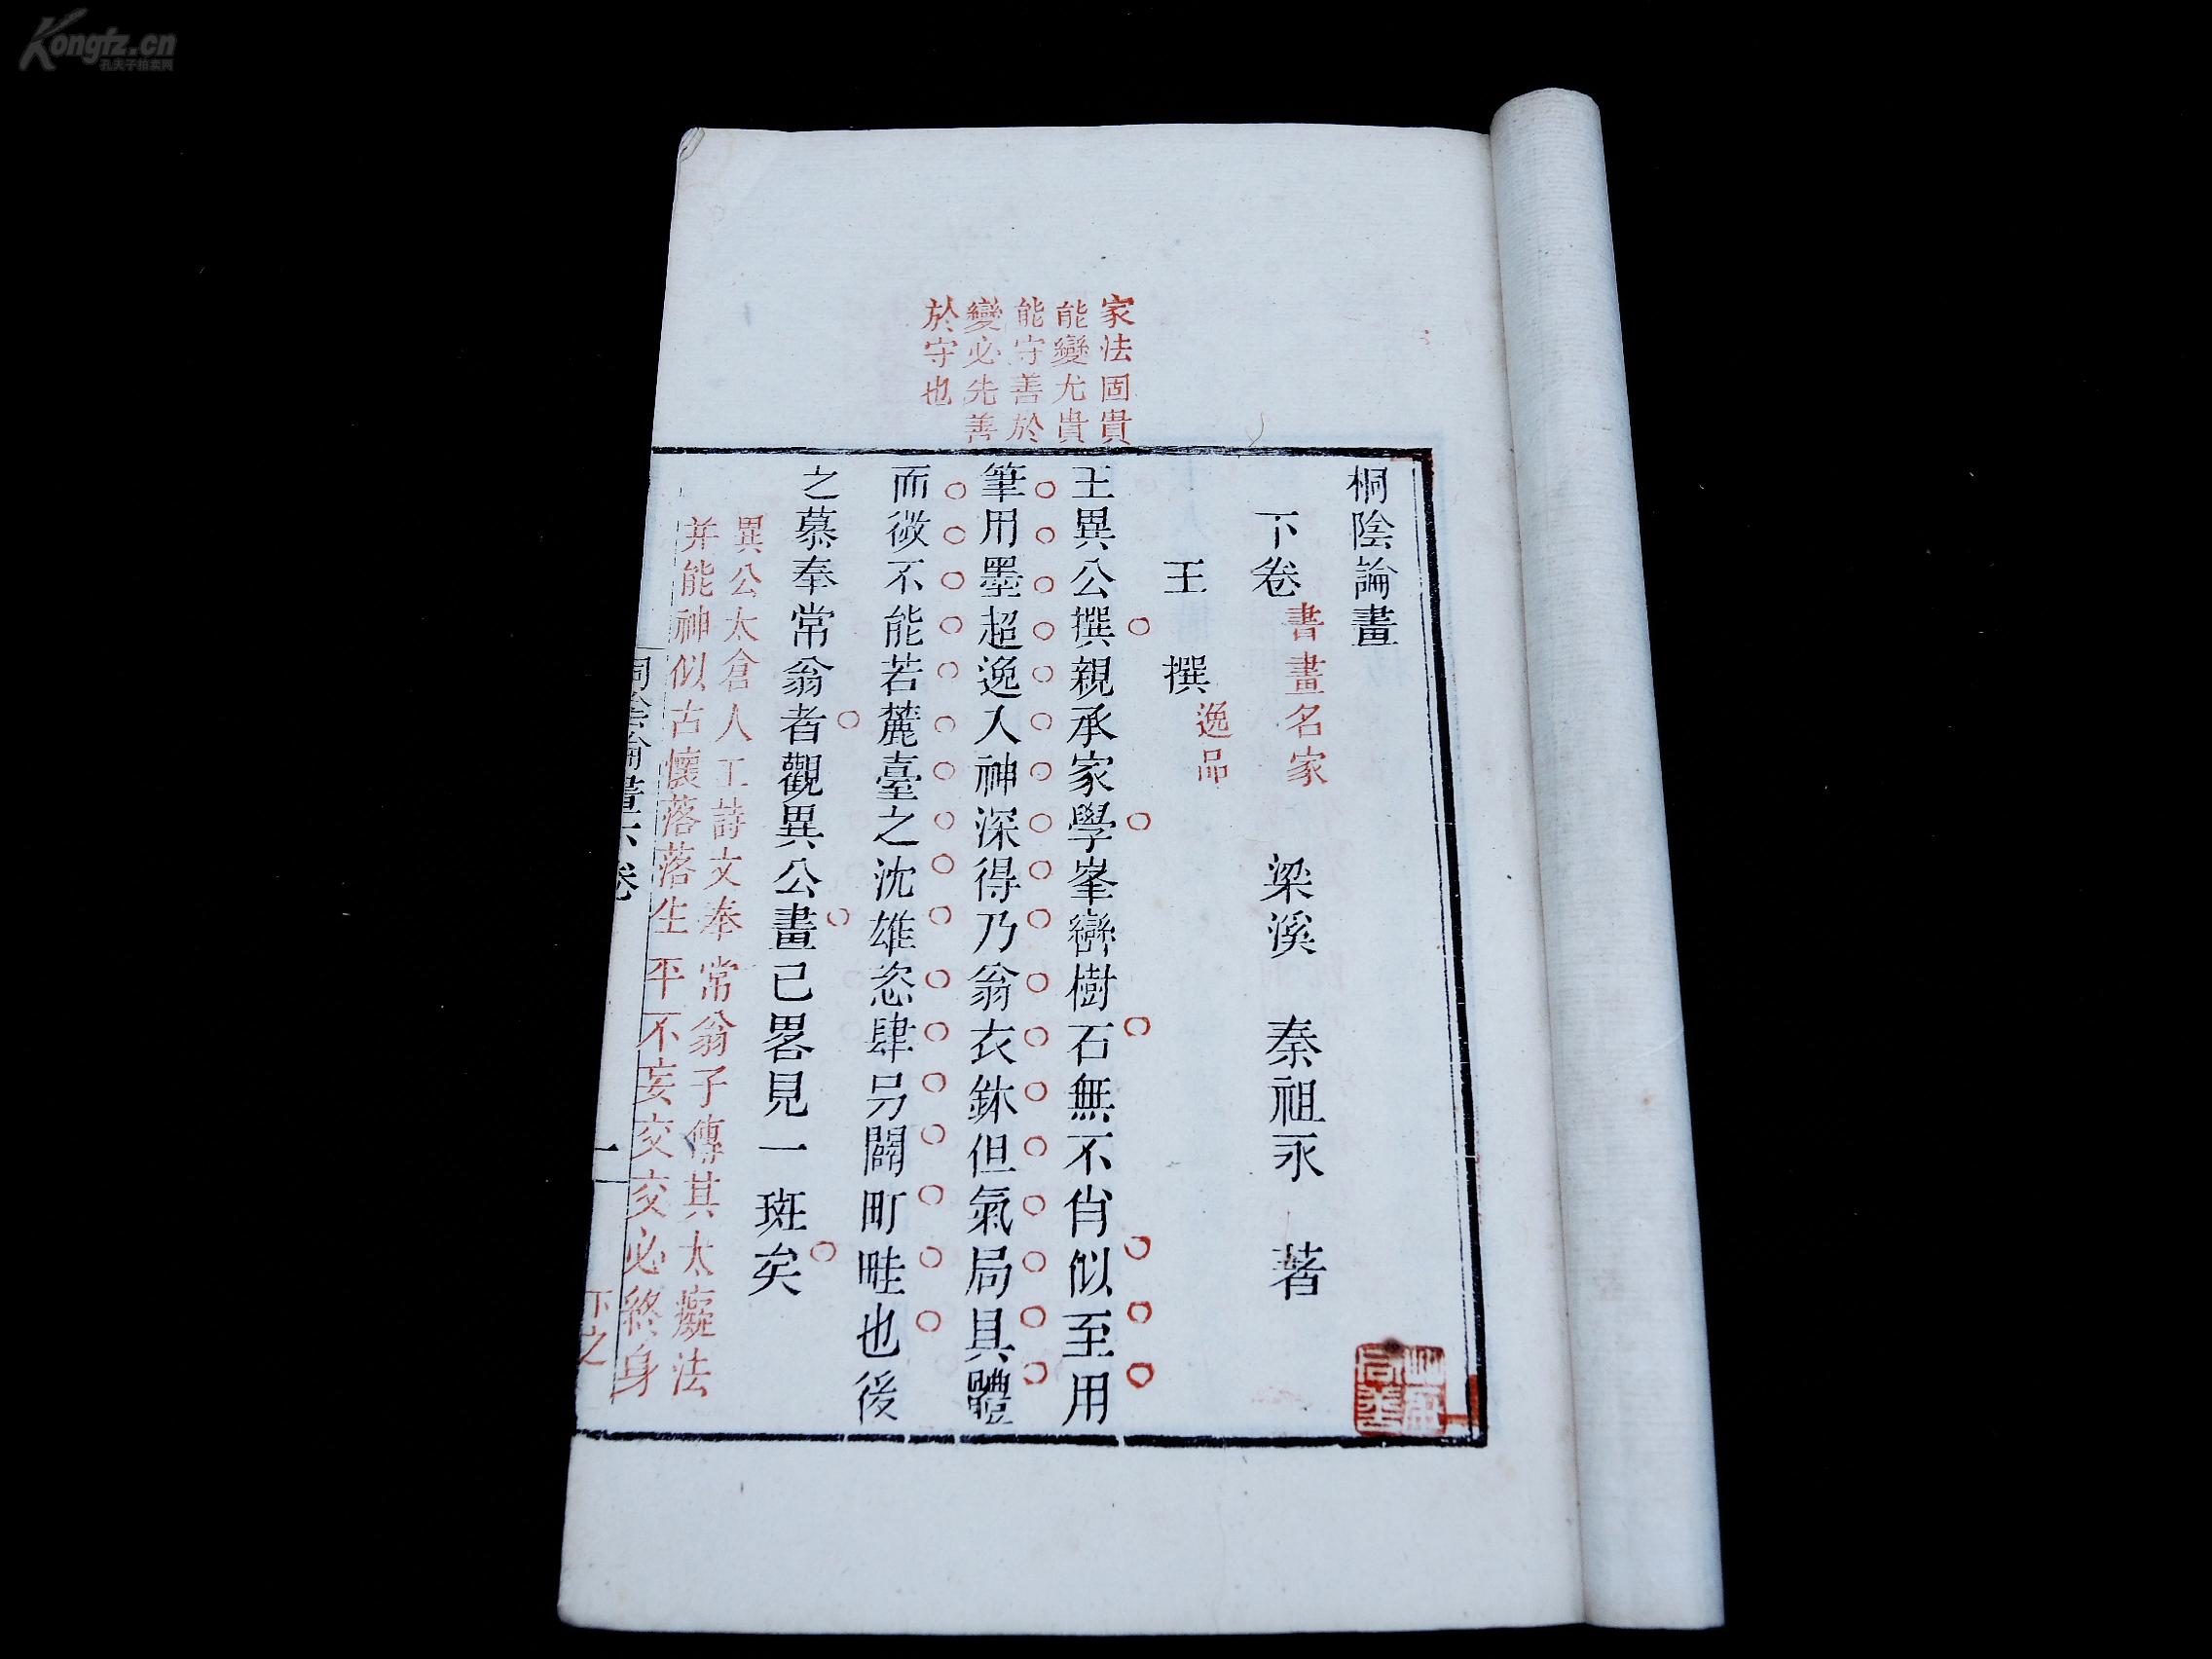 Kongfz.cn
孔夫子拍卖网
家法固貴
能變尤貴
能守善於
變必先善
於守也
桐陰論畫
下卷 書畫名家 梁溪 秦祖永 著
王 撰 逸品
王異公撰親承家學峯巒樹石無不肖似至用
筆用墨超逸入神深得乃翁衣鉢但氣局具體
而微不能若麓臺之沈雄恣肆另闢町畦也後
之慕奉常翁者觀異公畫已畧見一斑矣
異公太倉人工詩文奉常翁子傳其太癡法
并能神似古懷落落生平不妄交交必終身
桐陰論畫下卷
一
下之